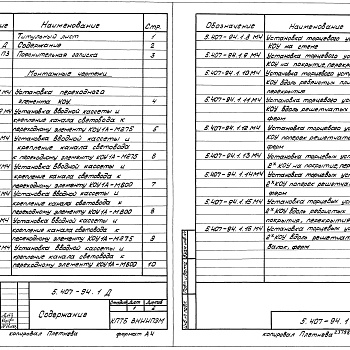 ение
Наименование
Стр.
Титульный лист
1
Д
Содержание
2
ПЗ
Пояснительная записка
3
Монтажные чертежи
МЧ
Установка переходного
элемента КОУ
4
МЧ
Установка вводной кассеты и
крепление канала световода к
переходному элементу КОУ1А-М275
5
МЧ
Установка вводной кассеты и
крепление канала световода
к переходному элементу КОУ1А-М275
6
МЧ
Установка вводной кассеты и
крепление канала световода к
переходному элементу КОУ1А-М600
7
МЧ
Установка вводной кассеты и
крепление канала световода к
переходному элементу КОУ1А-М600
8
МЧ
Установка вводной кассеты и
крепление канала световода к
переходному элементу КОУ1А-М275
9
МЧ
Установка вводной кассеты и
крепление канала световода к
переходному элементу КОУ1А-М600
10
5.407-94.1 Д
Содержание
Листов
1
2
ВНИИПЭМ
копировал Плетнева
формат А4
Обозначение
Наименование
5.407-94.1.8 МЧ
Установка торцевого
КОУ на стене
5.407-94.1.9 МЧ
Установка торцевого
КОУ на покрытие,
5.407-94.1.10 МЧ
Установка торцевого
КОУ вдоль
перекрытие
5.407-94.1.11 МЧ
Установка торцевого
КОУ вдоль решетчатых
ферм
5.407-94.1.12 МЧ
Установка торцевого
КОУ поперек
ферм
5.407-94.1.13 МЧ
Установка торцевых
2х КОУ на покрытие,
5.407-94.1.14 МЧ
Установка торцевых
2х КОУ поперек
ферм
5.407-94.1.15 МЧ
Установка торцевых
2х КОУ вдоль
покрытия,
5.407-94.1.16 МЧ
Установка торцевых
2х КОУ вдоль
балок, ферм
5.407-94.1
копировал Плетнева